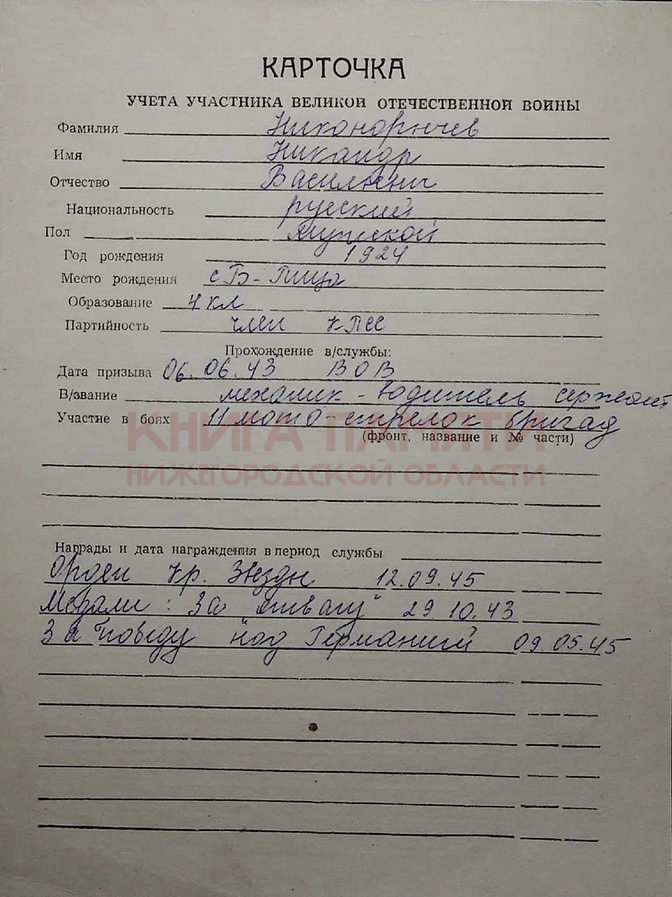 КАРТОЧКА
УЧЕТА УЧАСТНИКА ВЕЛИКОЙ ОТЕЧЕСТВЕННОЙ ВОЙНЫ
Фамилия
Имя Никандр
Отчество Васильевич
Национальность русский
Пол мужской
Год рождения 1924
Место рождения с Б-Пица
Образование 4 кл
Партийность член КПСС
Прохождение в/службы:
Дата призыва 06.06.43 ВОВ
В/звание механик-водитель сержант
Участие в боях 11 мото-стрелок бригад
(фронт, название и № части)
КНИГА ПАМЯТИ
НИЖЕГОРОДСКОЙ ОБЛАСТИ
Награды и дата награждения в период службы
Орден Кр. Звезды 12.09.45
Медали: За отвагу" 29 10.43
За "победу "над Германией 09.05.45